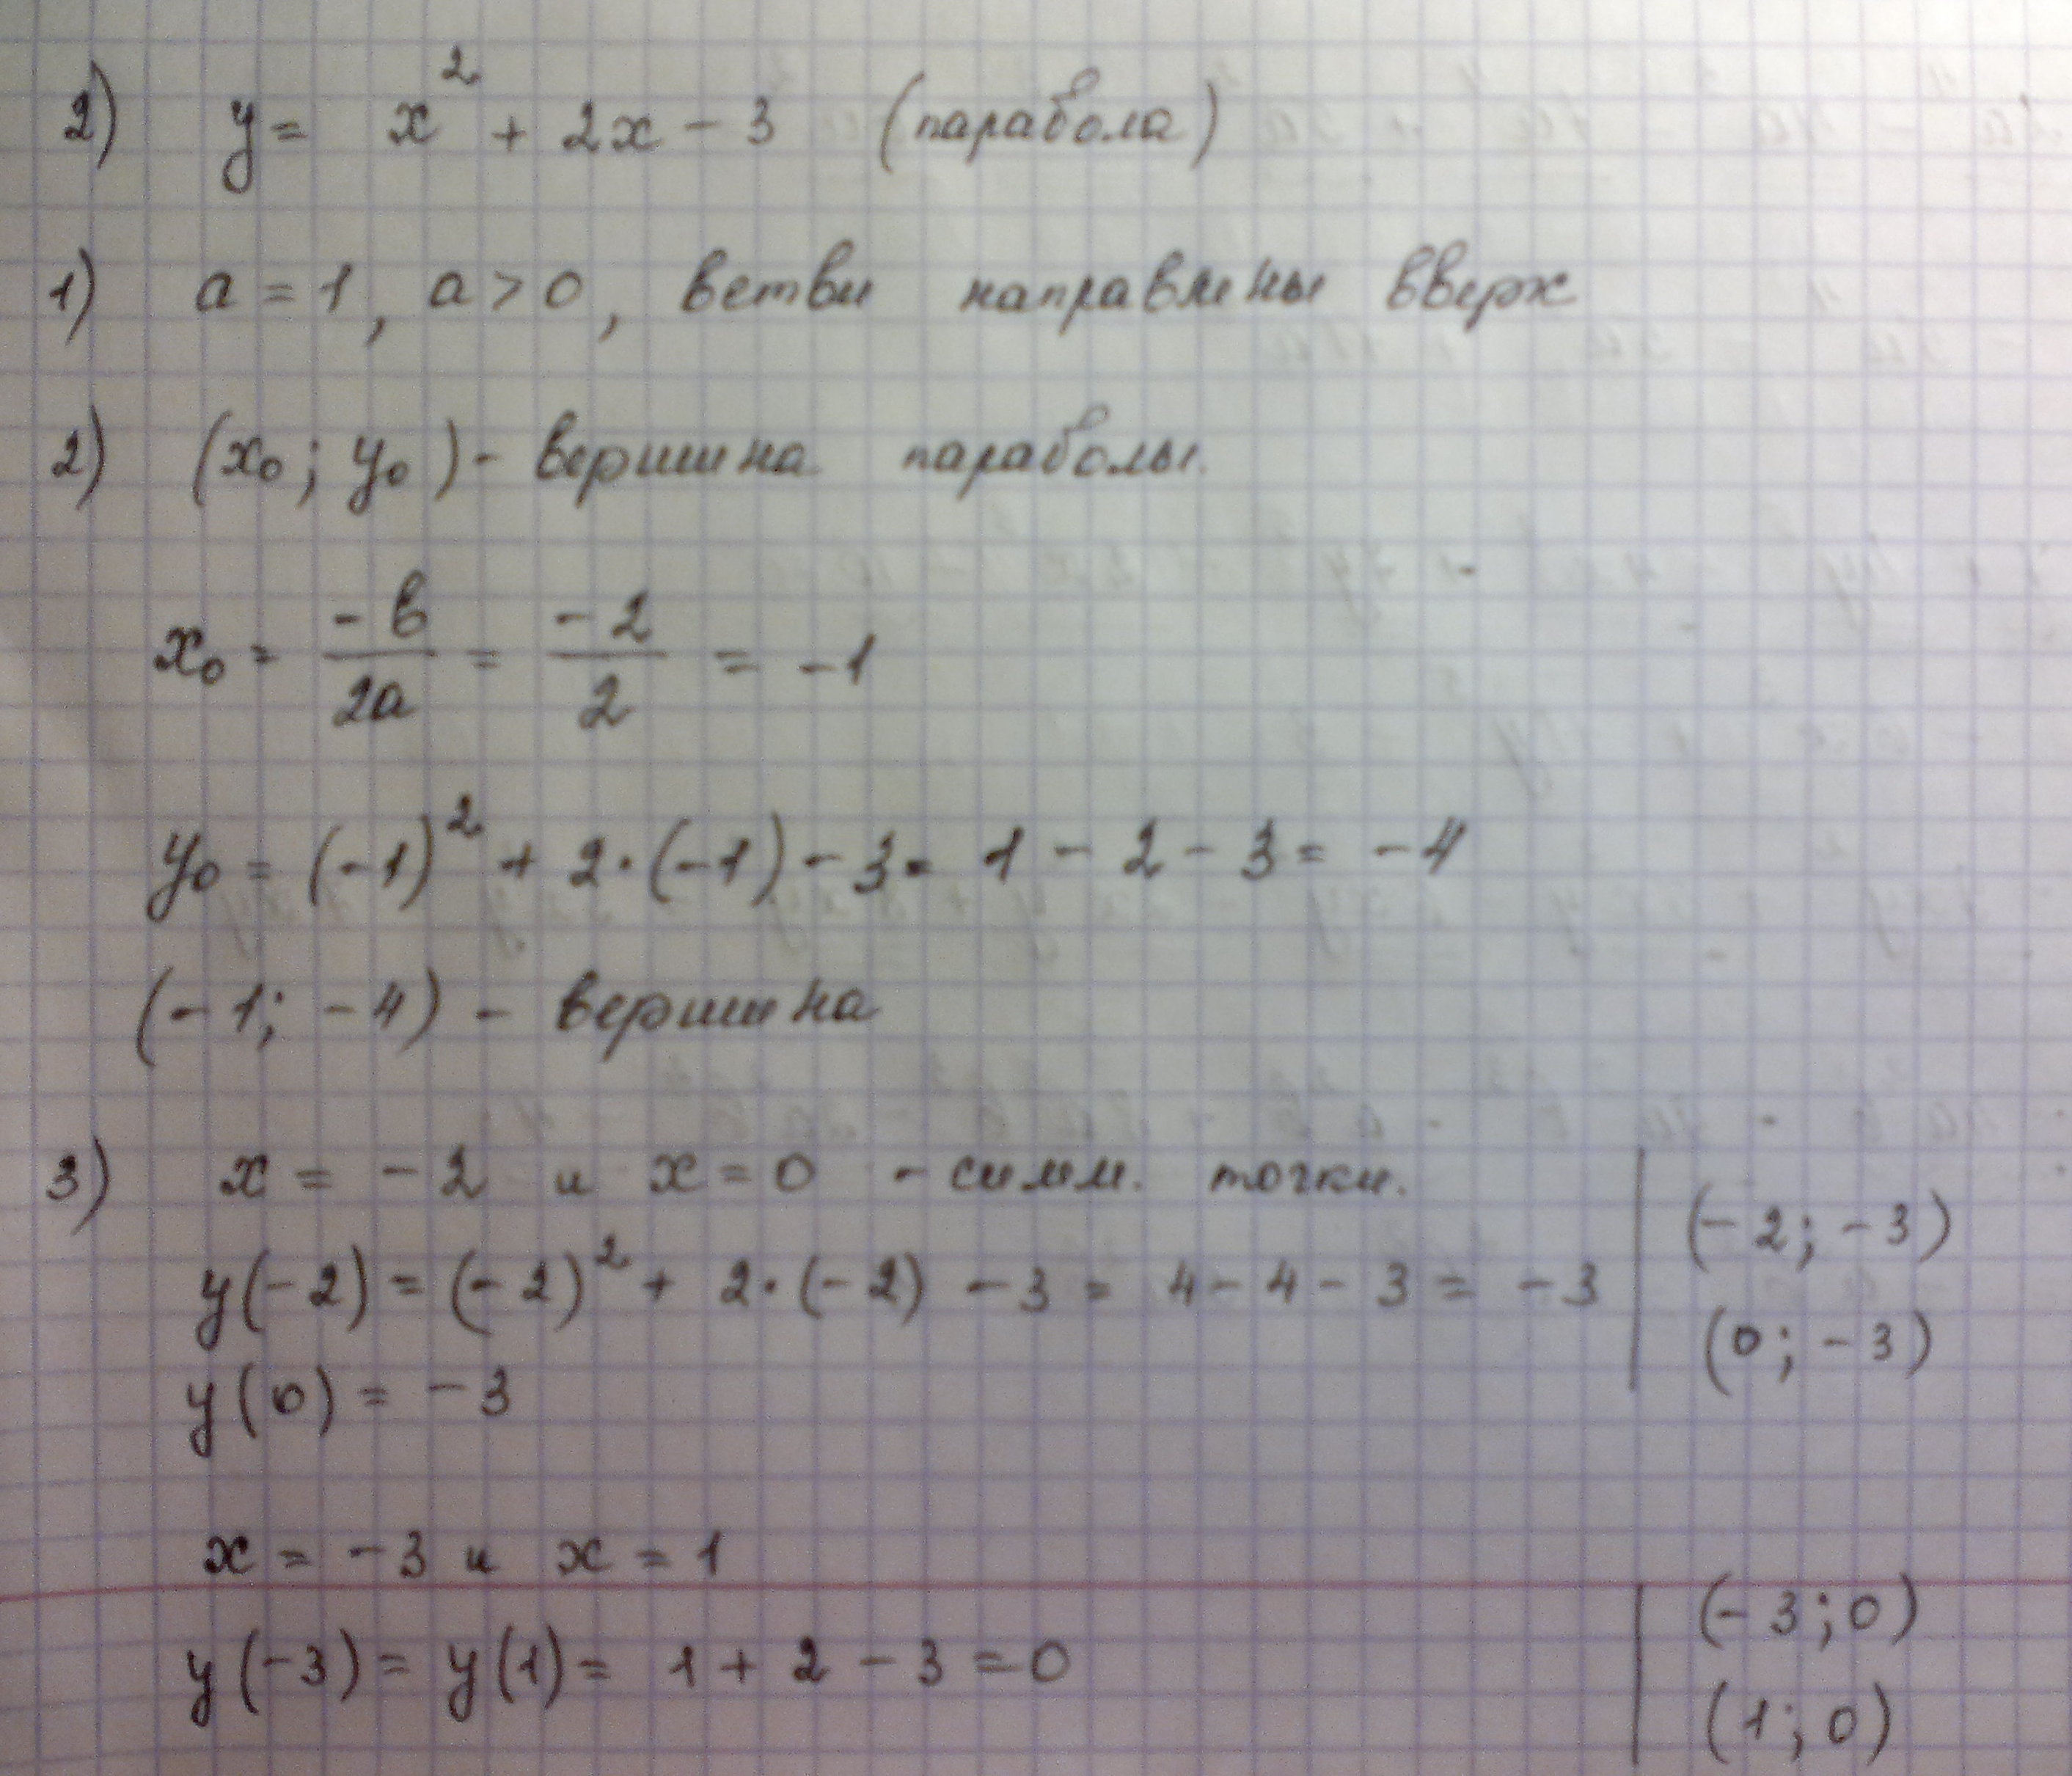 2) y = x² + 2x - 3 (парабола)
1) a = 1, a > 0, ветви направлены вверх
2) (x₀; y₀) - вершина параболы.
x₀ = -b/2a = -2/2 = -1
y₀ = (-1)² + 2·(-1) - 3 = 1 - 2 - 3 = -4
(-1; -4) - вершина
3) x = -2 и x = 0 - симм. точки.
y(-2) = (-2)² + 2·(-2) - 3 = 4 - 4 - 3 = -3
y(0) = -3
(-2; -3)
(0; -3)
x = -3 и x = 1
y(-3) = y(1) = 1 + 2 - 3 = 0
(-3; 0)
(1; 0)